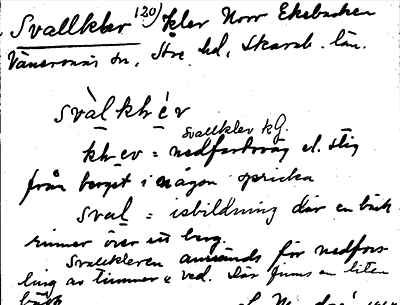 Svallklev 120) klev Norr Ekebacken
Vänersnäs sn, Åse hd, Skarab. län.
svàlkhév
svallklev kG.
khev = nedfartsväg el. stig
från berget i någon spricka
sval = isbildning där en bäck
rinner över ett berg
Svallkleven används för nedfors-
ling av timmer o ved. Där finns en liten
bäck